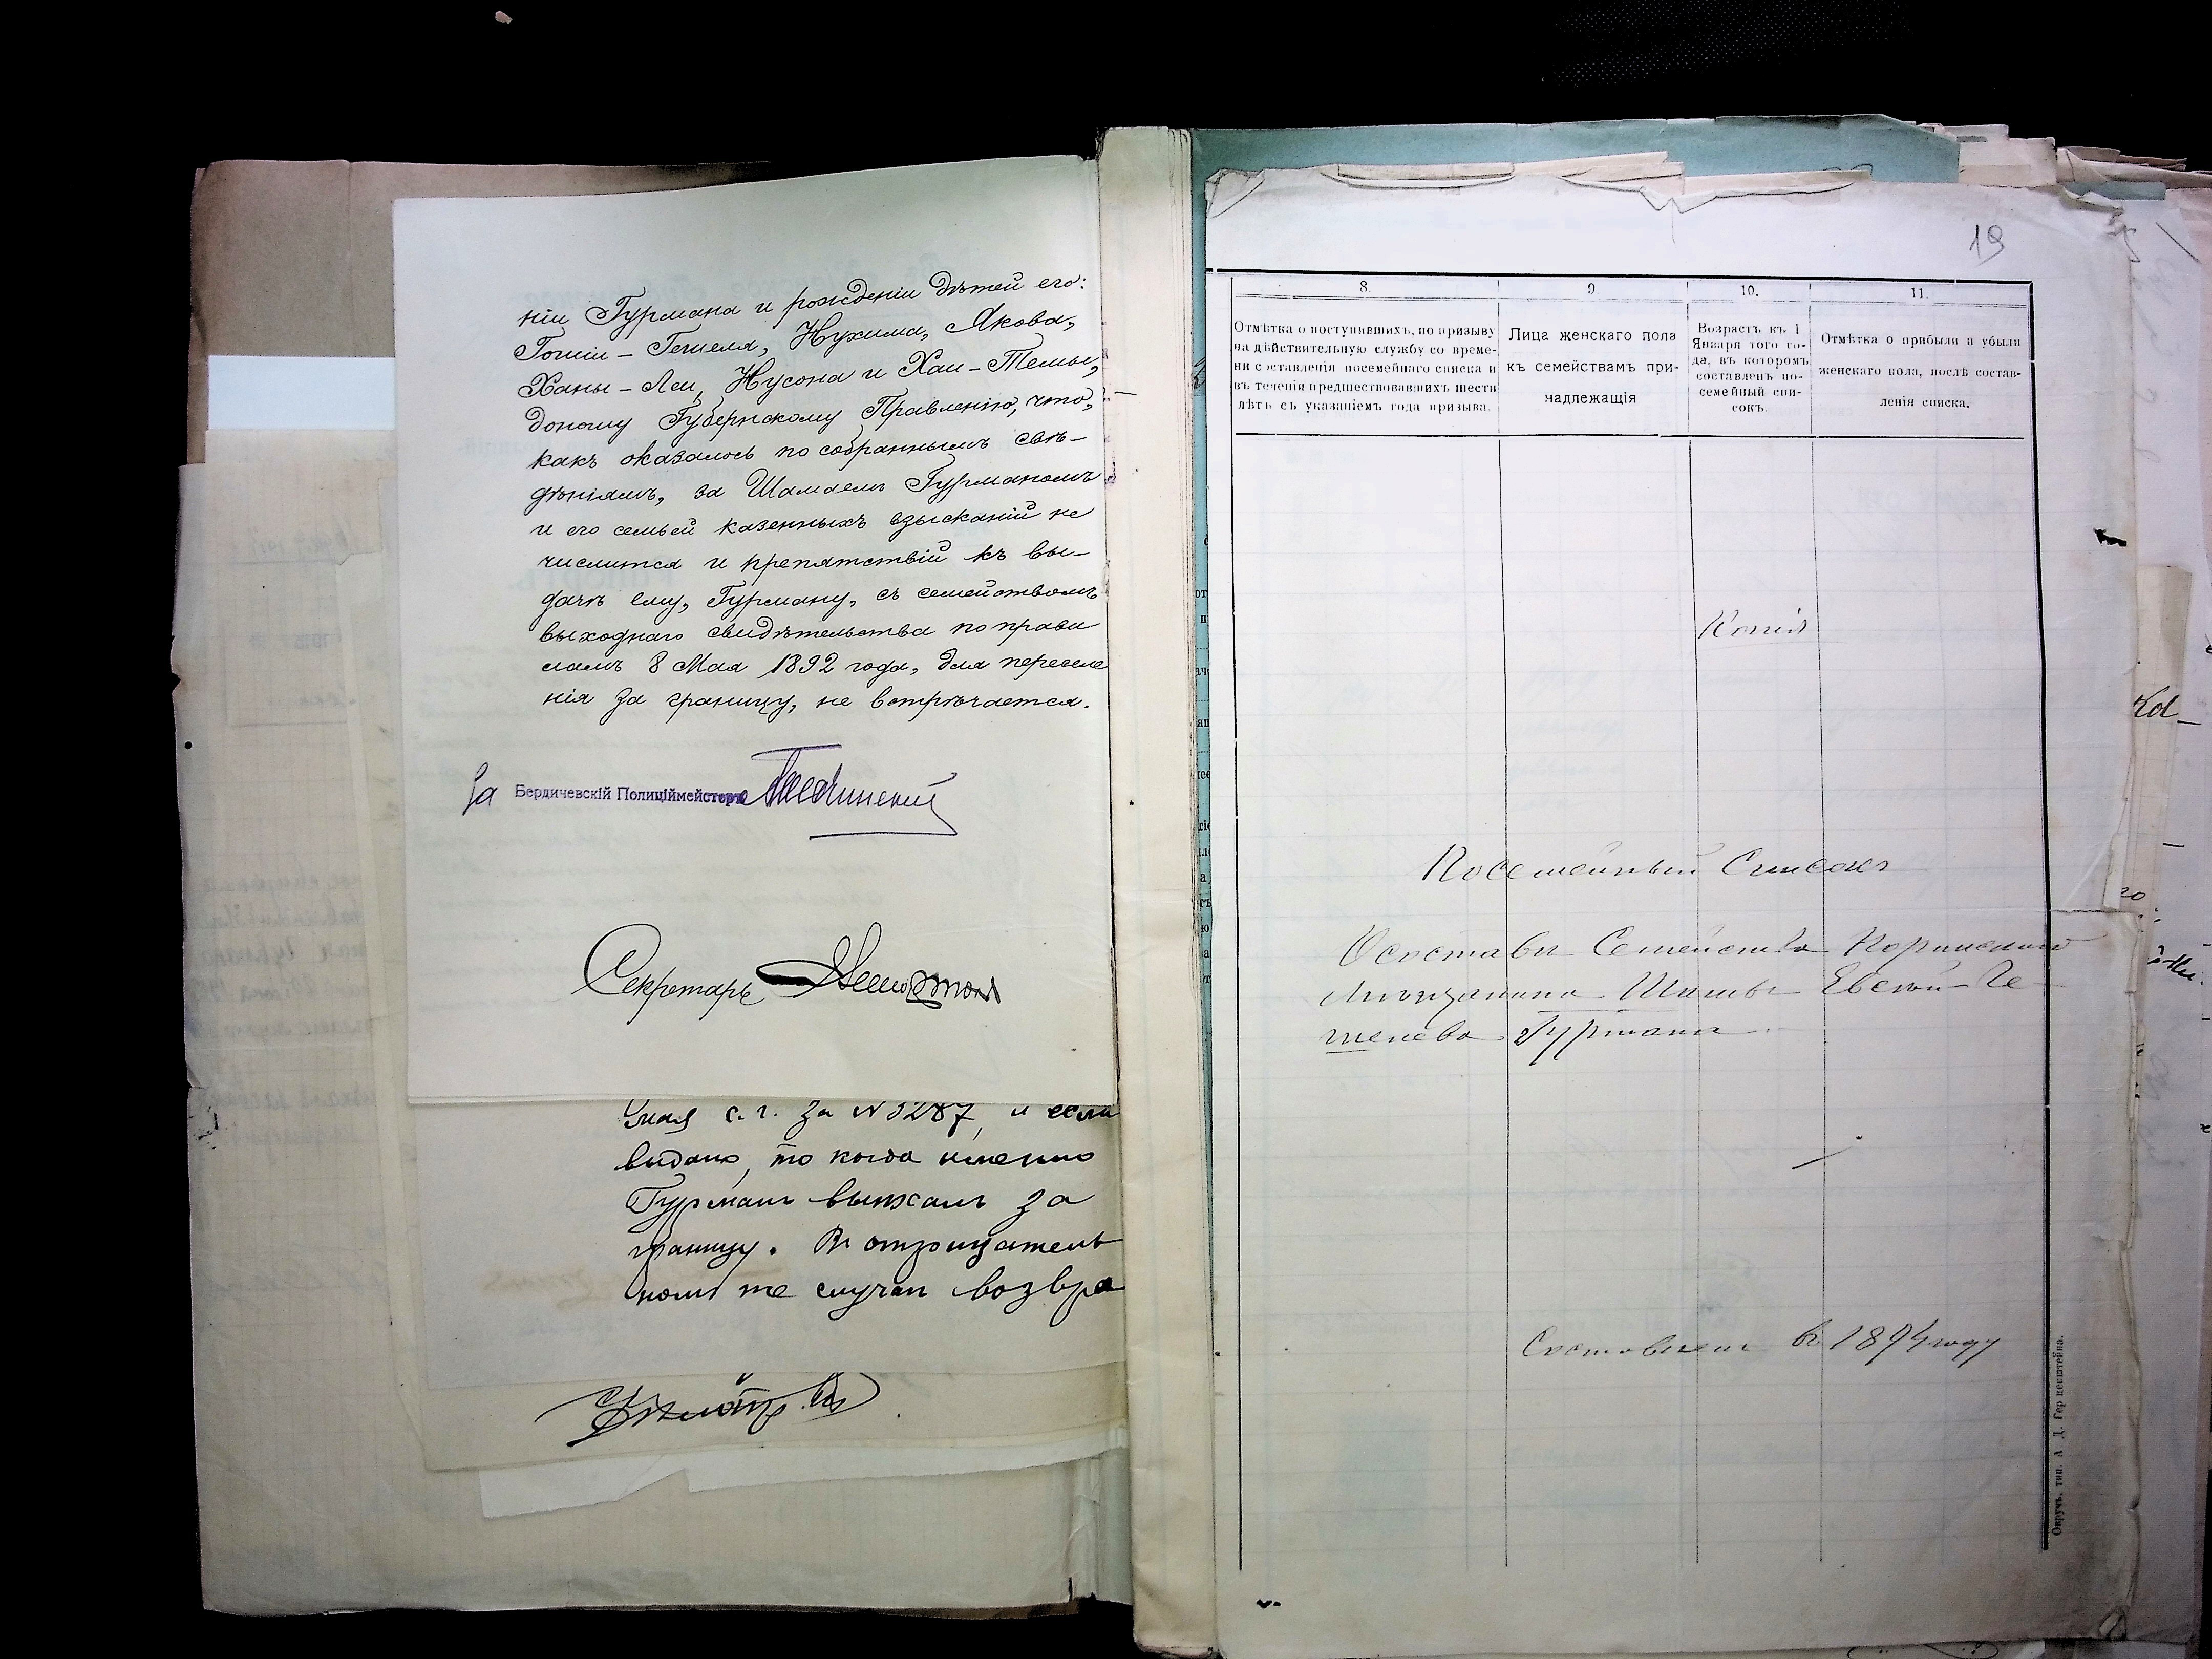 ніи Гурмана и рожденіи дѣтей его:
Гошіи-Гешеля, Нухима, Якова,
Ханы-Леи, Нусона и Хаи-Темы,
доношу Губернскому Правленію, что,
какъ оказалось по собраннымъ свѣ-
дѣніямъ, за Шамаемъ Гурманомъ
и его семьей казенныхъ взысканій не
числится и препятствій къ вы-
дачѣ ему, Гурману, съ семействомъ
выходнаго свидѣтельства по прави
ламъ 8 Мая 1892 года, для переселе
нія за границу, не встрѣчается.
За Бердичевскій Полиціймейстеръ
Секретарь
мая с. г. за № 5287, и если
выдано, то когда именно
Гурманъ выѣхалъ за
границу. Въ отрицатель
номъ же случаѣ возвра
19
8.
9.
10.
11.
Отмѣтка о поступившихъ, по призыву
на дѣйствительную службу со време-
ни составленія посемейнаго списка и
въ теченіи предшествовавшихъ шести
лѣтъ съ указаніемъ года призыва.
Лица женскаго пола
къ семействамъ при-
надлежащія
Возрастъ къ 1
Января того го-
да, въ которомъ
составленъ по-
семейный спи-
сокъ.
Отмѣтка о прибыли и убыли
женскаго пола, послѣ состав-
ленія списка.
Копія
Посемейный Списокъ
О составѣ Семейства
Мѣщанина Евсей-Ге-
шелева Гурмана
Составленъ въ 1894 году
Овручъ, тип. А. Д.